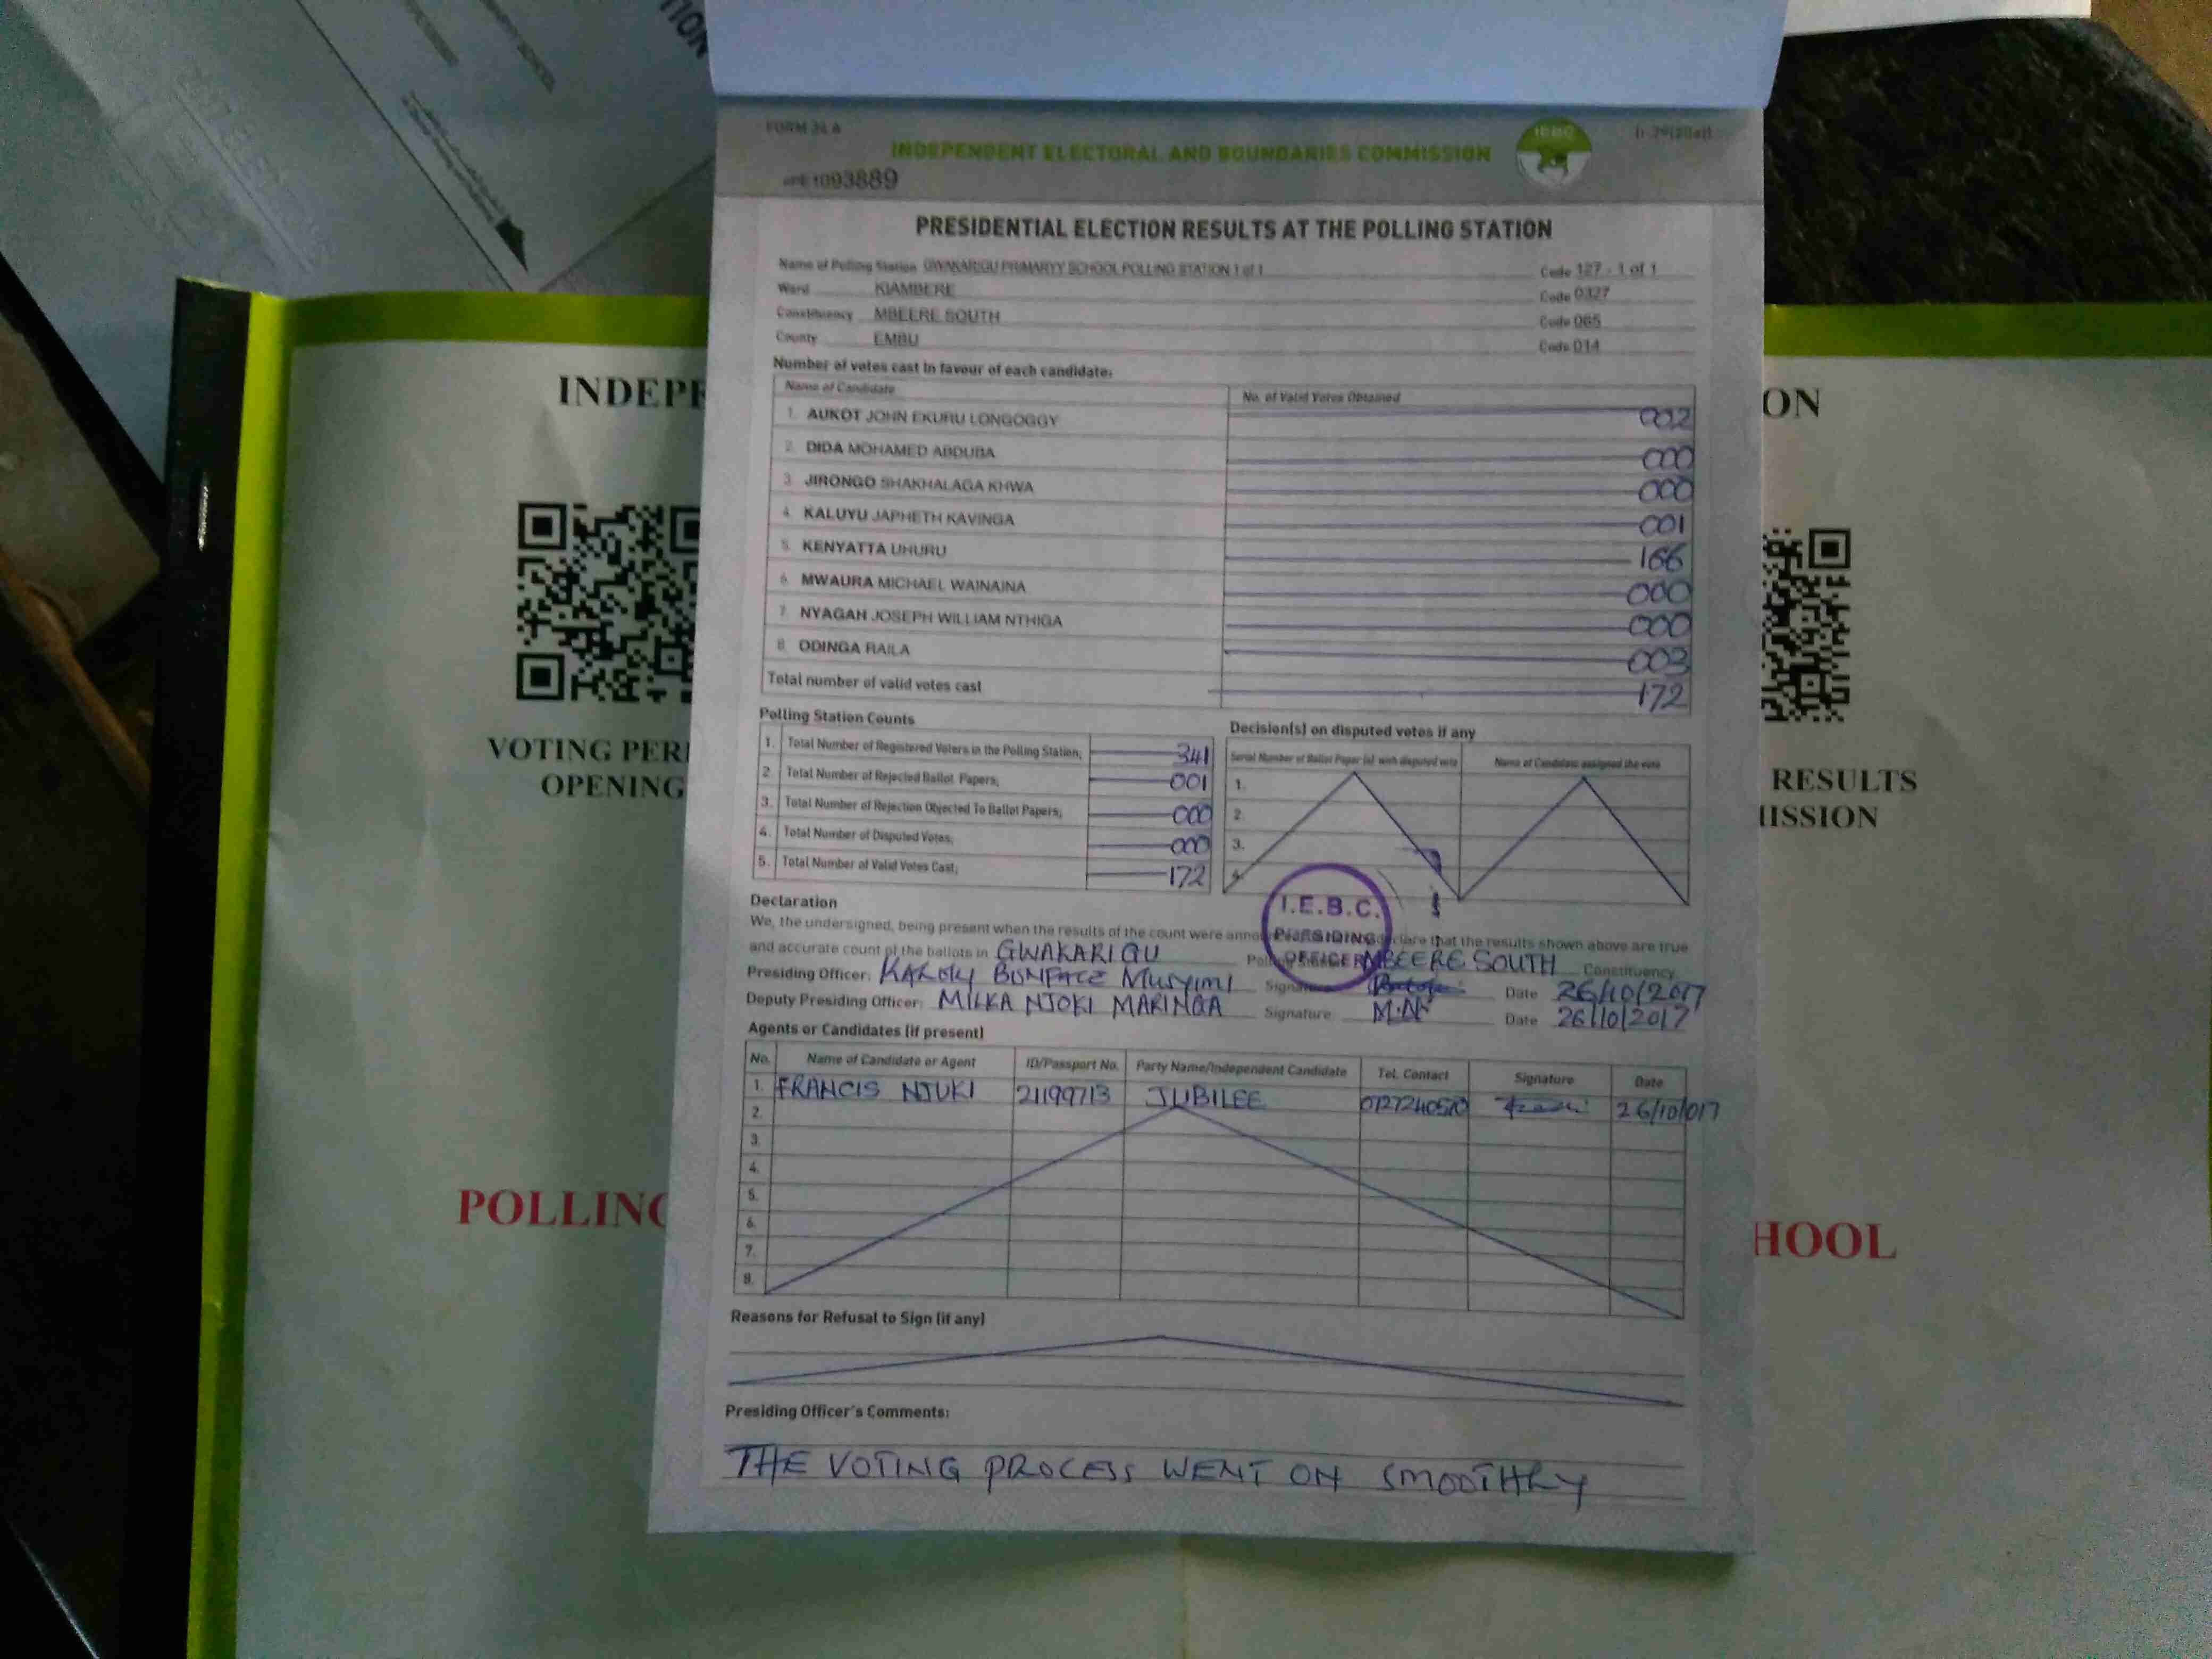 FORM 34 A
INDEPENDENT ELECTORAL AND BOUNDARIES COMMISSION
IEBC
1093889
PRESIDENTIAL ELECTION RESULTS AT THE POLLING STATION
Name of Polling Station GWAKARIGU PRIMARYY SCHOOL POLLING STATION 1 of 1 Code 127 - 1 of 1
Ward KIAMBERE Code 0327
Constituency MBEERE SOUTH Code 065
County EMBU Code 014
Number of votes cast in favour of each candidate:
Name of Candidate No. of Valid Votes Obtained
1. AUKOT JOHN EKURU LONGOGGY 002
2. DIDA MOHAMED ABDUBA 000
3. JIRONGO SHAKHALAGA KHWA 000
4. KALUYU JAPHETH KAVINGA 001
5. KENYATTA UHURU 166
6. MWAURA MICHAEL WAINAINA 000
7. NYAGAH JOSEPH WILLIAM NTHIGA 000
8. ODINGA RAILA 003
Total number of valid votes cast 172
Polling Station Counts
1. Total Number of Registered Voters in the Polling Station; 341
2. Total Number of Rejected Ballot Papers; 001
3. Total Number of Rejection Objected To Ballot Papers; 000
4. Total Number of Disputed Votes; 000
5. Total Number of Valid Votes Cast; 172
Decision(s) on disputed votes if any
Serial Number of Ballot Paper (s) with disputed vote Name of Candidate assigned the vote
1.
2.
3.
4.
I.E.B.C.
PRESIDING
OFFICER
Declaration
We, the undersigned, being present when the results of the count were declare that the results shown above are true
and accurate count of the ballots in GWAKARIGU MBEERE SOUTH Constituency
Presiding Officer: KAROKI BONFACE MUSYIMI Signature Date 26/10/2017
Deputy Presiding Officer: MILKA NJOKI MARINGA Signature Date 26/10/2017
Agents or Candidates (if present)
No. Name of Candidate or Agent ID/Passport No. Party Name/Independent Candidate Tel. Contact Signature Date
1. FRANCIS NJUKI 21199713 JUBILEE 26/10/017
2.
3.
4.
5.
6.
7.
8.
Reasons for Refusal to Sign (if any)
Presiding Officer's Comments:
THE VOTING PROCESS WENT ON SMOOTHLY
INDEPE
VOTING PER
OPENING
POLLING
ON
RESULTS
ISSION
HOOL